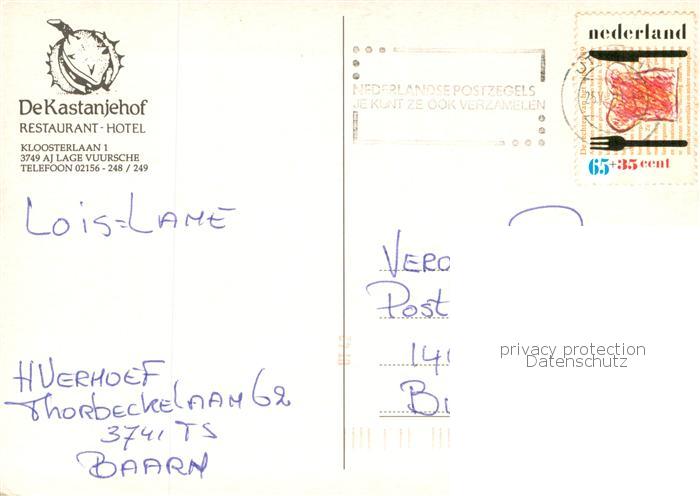 De Kastanjehof
RESTAURANT - HOTEL
KLOOSTERLAAN 1
3749 AJ LAGE VUURSCHE
TELEFOON 02156 - 248 / 249
NEDERLANDSE POSTZEGELS
JE KUNT ZE OOK VERZAMELEN
nederland
65+35 cent
LOIS=LANE
HVERHOEF
Thorbeckelaan 62
3741 TS
BAARN
VERO
Post
141
privacy protection
Datenschutz